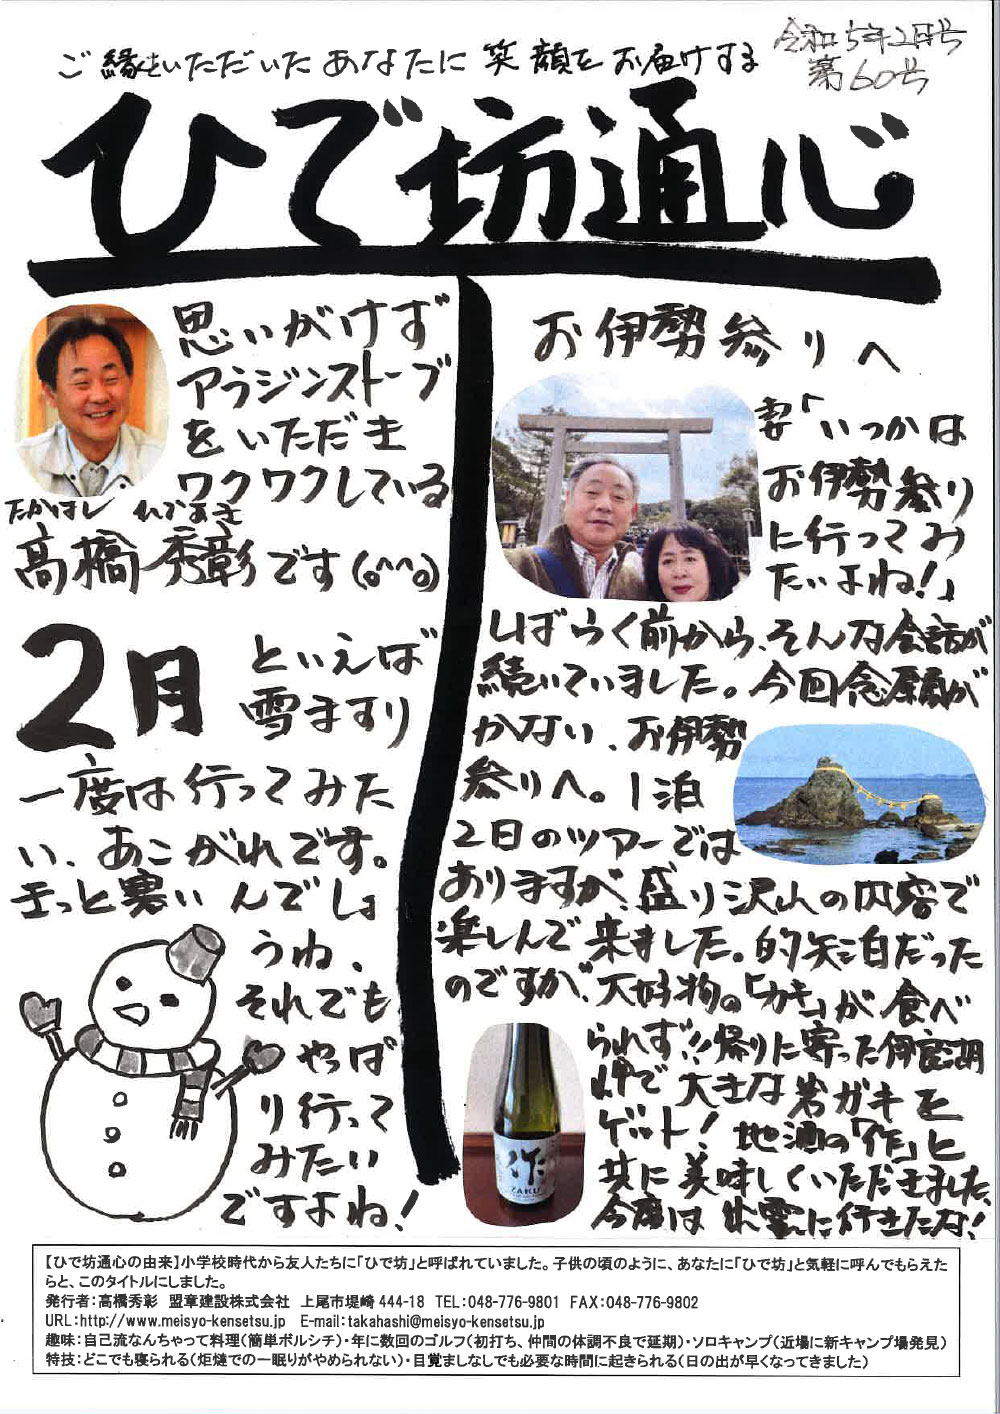 ご縁をいただいたあなたに笑顔をお届けする
令和5年2月号
第60号
ひで坊通心
思いがけず
アラジンストーブ
をいただき
ワクワクしている
たかはし ひであき
高橋秀彰です(。^^。)
2月
といえば
雪まつり
一度は行ってみた
い、あこがれです。
きっと寒いんでしょ
うね、
それでも
やっぱ
り行って
みたい
ですよね!
お伊勢参りへ
妻「いつかは
お伊勢参り
に行ってみ
たいよね!」
しばらく前から、そんな会話が
続いていました。今回念願が
かない、お伊勢
参りへ。1泊
2日のツアーでは
ありますが、盛り沢山の内容で
楽しんで来ました。的矢泊だった
のですが、大好物の「カキ」が食べ
られず!!帰りに寄った伊良湖
岬で大きな岩ガキを
ゲット!地酒の「作」と
共に美味しくいただきました、
今度は出雲に行きたいな!
作
ZAKU
【ひで坊通心の由来】小学校時代から友人たちに「ひで坊」と呼ばれていました。子供の頃のように、あなたに「ひで坊」と気軽に呼んでもらえた
らと、このタイトルにしました。
発行者:高橋秀彰 盟章建設株式会社 上尾市堤崎444-18 TEL:048-776-9801 FAX:048-776-9802
URL:http://www.meisyo-kensetsu.jp E-mail:takahashi@meisyo-kensetsu.jp
趣味:自己流なんちゃって料理(簡単ボルシチ)・年に数回のゴルフ(初打ち、仲間の体調不良で延期)・ソロキャンプ(近場に新キャンプ場発見)
特技:どこでも寝られる(炬燵での一眠りがやめられない)・目覚ましなしでも必要な時間に起きられる(日の出が早くなってきました)